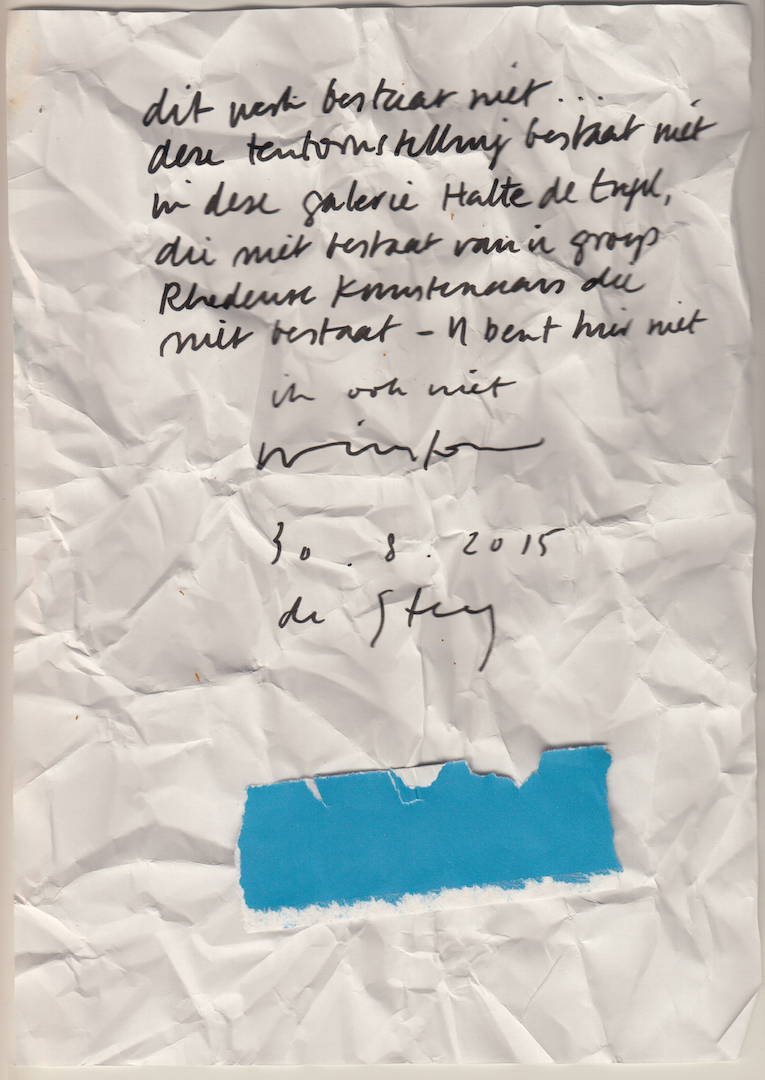 dit werk bestaat niet...
deze tentoonstelling bestaat niet
in deze galerie Halte de Engel,
die niet bestaat van 'n groep
Rhedense Kunstenaars die
niet bestaat – U bent hier niet
ik ook niet
Winston
30.8.2015
de Steeg